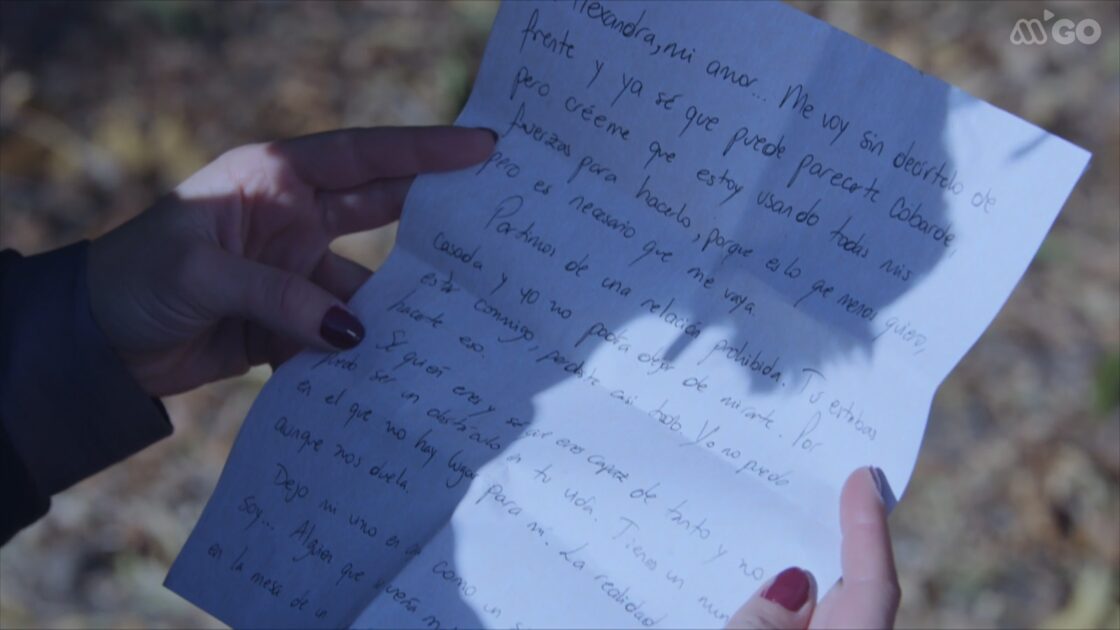 Alexandra, mi amor... Me voy sin decírtelo de
frente y ya sé que puede parecerte cobarde,
pero créeme que estoy usando todas mis
fuerzas para hacelo, porque es lo que menos quiero,
pero es necesario que me vaya
Partimos de una relación prohibida. Tú estabas
casada y yo no podía dejar de mirarte. Por
estar conmigo, perdiste casi todo. Yo no puedo
hacerte eso.
Sé quién eres y sé que eres capaz de tanto y no
puedo ser un obstáculo en tu vida. Tienes un mun
en el que no hay lugar para mi. La realidad
aunque nos duela.
Dejo mi vino en como un s
soy... Alguien que
en la mesa de un
GO